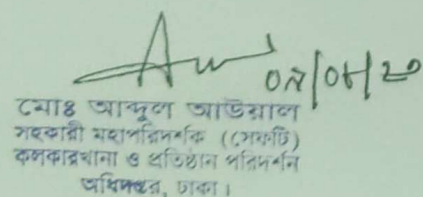 ০৯/০৮/২০
মোঃ আব্দুল আউয়াল
সহকারী মহাপরিদর্শক (সেফটি)
কলকারখানা ও প্রতিষ্ঠান পরিদর্শন
অধিদপ্তর, ঢাকা।